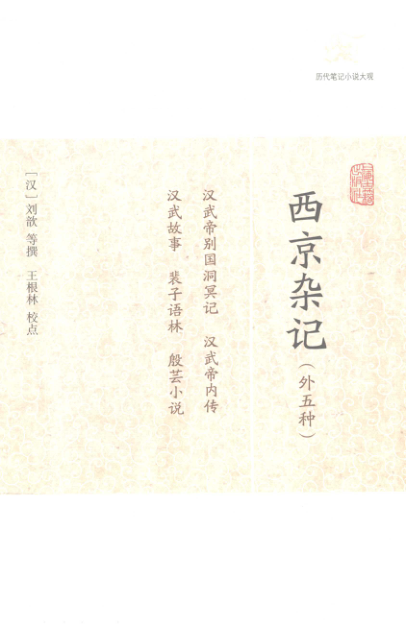 历代笔记小说大观
西京杂记
（外五种）
汉武帝别国洞冥记 汉武帝内传
汉武故事 裴子语林 殷芸小说
［汉］刘歆 等撰 王根林 校点